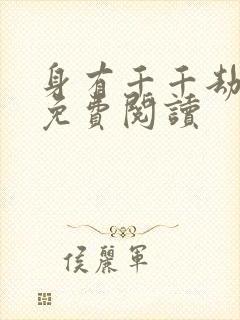 身有千千劫
免費閱讀
侯麗軍